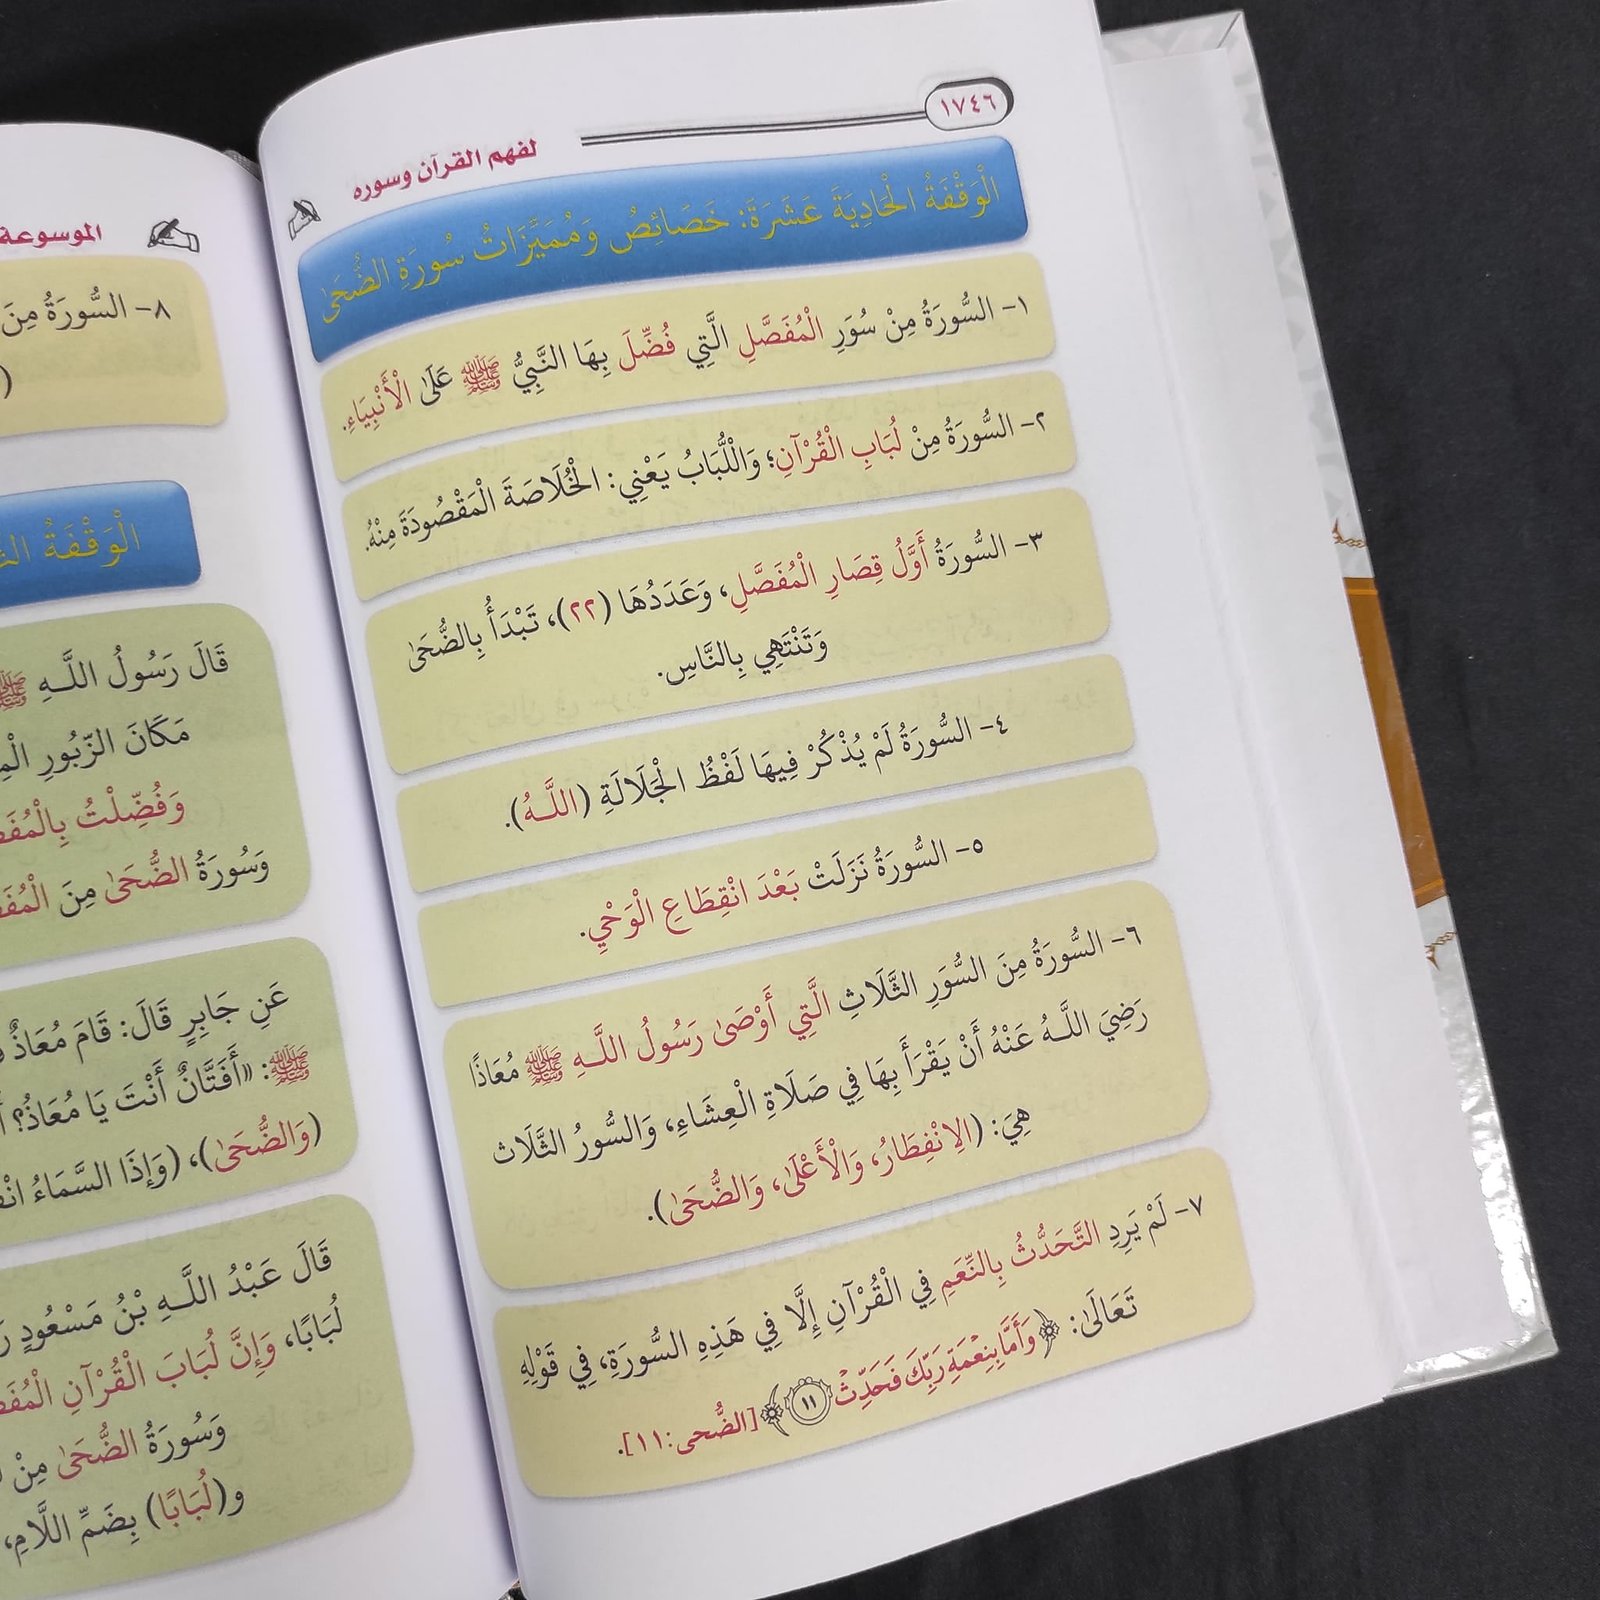 ١٧٤٦
لفهم القرآن وسوره
الْوَقْفَةُ الْحَادِيَةَ عَشَرَةَ: خَصَائِصُ وَمُمَيِّزَاتُ سُورَةِ الضُّحَىٰ
١- السُّورَةُ مِنْ سُوَرِ الْمُفَصَّلِ الَّتِي فُضِّلَ بِهَا النَّبِيُّ ﷺ عَلَىٰ الْأَنْبِيَاءِ.
٢- السُّورَةُ مِنْ لُبَابِ الْقُرْآنِ؛ وَاللُّبَابُ يَعْنِي: الْخُلَاصَةَ الْمَقْصُودَةَ مِنْهُ.
٣- السُّورَةُ أَوَّلُ قِصَارِ الْمُفَصَّلِ، وَعَدَدُهَا (٢٢)، تَبْدَأُ بِالضُّحَىٰ
وَتَنْتَهِي بِالنَّاسِ.
٤- السُّورَةُ لَمْ يُذْكَرْ فِيهَا لَفْظُ الْجَلَالَةِ (اللَّـهُ).
٥- السُّورَةُ نَزَلَتْ بَعْدَ انْقِطَاعِ الْوَحْيِ.
٦- السُّورَةُ مِنَ السُّوَرِ الثَّلَاثِ الَّتِي أَوْصَىٰ رَسُولُ اللَّـهِ ﷺ مُعَاذًا
رَضِيَ اللَّـهُ عَنْهُ أَنْ يَقْرَأَ بِهَا فِي صَلَاةِ الْعِشَاءِ، وَالسُّورُ الثَّلَاث
هِيَ: (الِانْفِطَارُ، وَالْأَعْلَىٰ، وَالضُّحَىٰ).
٧- لَمْ يَرِدِ التَّحَدُّثُ بِالنِّعَمِ فِي الْقُرْآنِ إِلَّا فِي هَذِهِ السُّورَةِ، فِي قَوْلِهِ
تَعَالَىٰ: ﴿وَأَمَّا بِنِعْمَةِ رَبِّكَ فَحَدِّثْ ١١﴾ [الضُّحى:١١].
الموسوعة
٨- السُّورَةُ مِنَ
(
الْوَقْفَةُ
قَالَ رَسُولُ اللَّـهِ ﷺ
مَكَانَ الزَّبُورِ
وَفُضِّلْتُ
وَسُورَةُ الضُّحَىٰ مِنَ
عَنِ جَابِرٍ قَالَ: قَامَ مُعَاذٌ
ﷺ: «أَفَتَّانٌ أَنْتَ يَا مُعَاذُ؟
(وَالضُّحَىٰ)، (وَإِذَا السَّمَاءُ
قَالَ عَبْدُ اللَّـهِ بْنُ مَسْعُودٍ
لُبَابًا، وَإِنَّ لُبَابَ الْقُرْآنِ
وَسُورَةُ الضُّحَىٰ مِنْ
و(لُبَابًا) بِضَمِّ اللَّامِ،